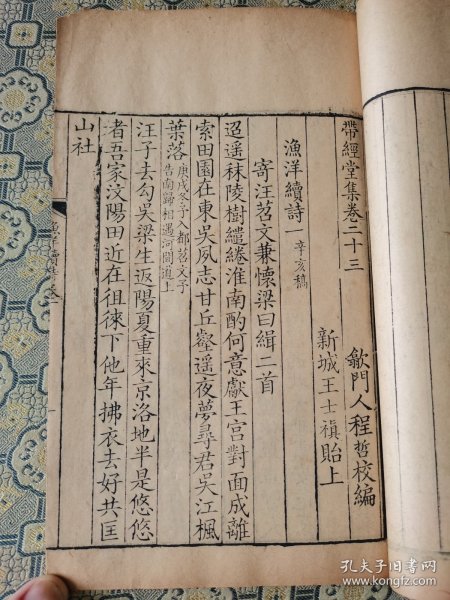 帶經堂集卷二十三
歙門人程哲校編
新城王士禛貽上
漁洋續詩一 辛亥稿
寄汪苕文兼懷梁曰緝二首
迢遥秣陵樹繾綣淮南酌何意獻王宮對面成離
索田園在東吳夙志甘丘壑遥夜夢尋君吳江楓
葉落 庚戌冬予入都苕文予告南歸相遇河間道上
汪子去勾吳梁生返陽夏重來京洛地半是悠悠
者吾家汶陽田近在徂徠下他年拂衣去好共匡
山社
孔夫子旧书网
www.kongfz.com